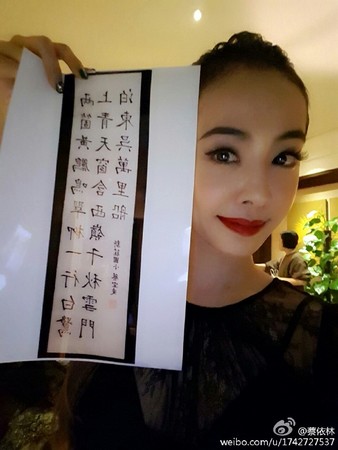 兩箇黃鸝鳴翠柳一行白鷺
上青天窗含西嶺千秋雪門
泊東吳萬里船
新莊國小 蔡宜凌
@蔡依林
weibo.com/u/1742727537